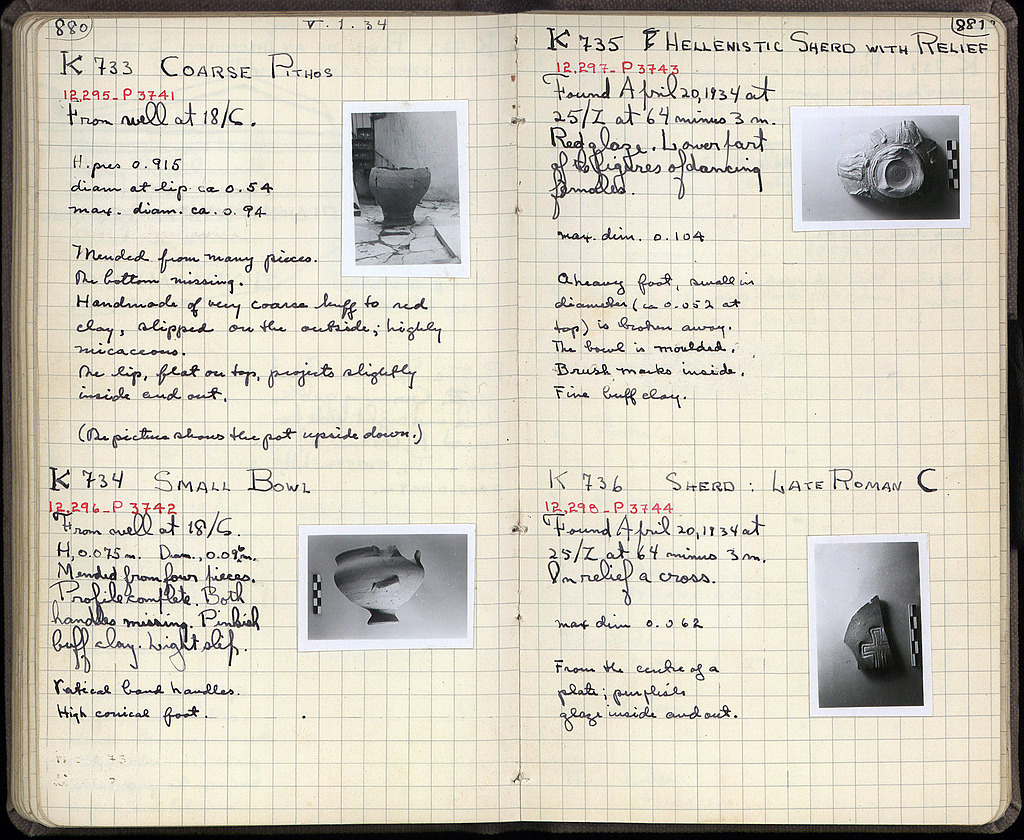 880
V. 1. 34
K 733 COARSE PITHOS
12,295-P 3741
From well at 18/ς.
H. pres 0.915
diam at lip ca 0.54
max. diam. ca. 0.94
Mended from many pieces.
The bottom missing.
Handmade of very coarse buff to red
clay, slipped on the outside; highly
micaceous.
The lip, flat on top, projects slightly
inside and out.
(The picture shows the pot upside down.)
K 734 SMALL BOWL
12,296-P 3742
From well at 18/ς.
H, 0.075 m. Diam., 0.09 m.
Mended from four pieces.
Profile complete. Both
handles missing. Pinkish
buff clay. Light slip.
Vertical band handles.
High conical foot.
881
K 735 HELLENISTIC SHERD WITH RELIEF
12,297-P 3743
Found April 20, 1934 at
25/Ι at 64 minus 3 m.
Red glaze. Lower part
of figures of dancing
females.
max. dim. 0.104
A heavy foot, small in
diameter (ca 0.052 at
top) is broken away.
The bowl is moulded.
Brush marks inside.
Fine buff clay.
K 736 SHERD: LATE ROMAN C
12,298-P 3744
Found April 20, 1934 at
25/Ι at 64 minus 3 m.
In relief a cross.
max dim 0.062
From the centre of a
plate; purplish
glaze inside and out.